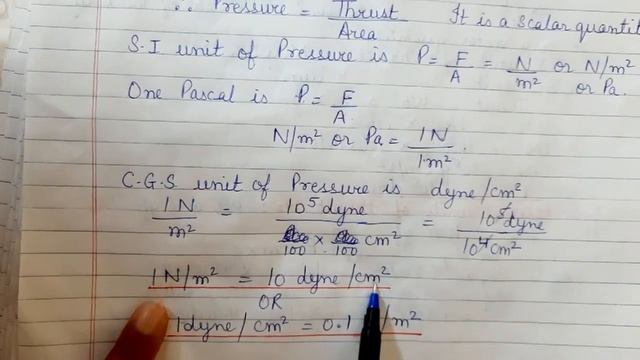 ∴ Pressure = Thrust/Area It is a scalar
S.I unit of Pressure is P = F/A = N/m² or N/m² or Pa.
One Pascal is P = F/A
N/m² or Pa = 1N/1m².
C.G.S unit of Pressure is dyne/cm²
1N/m² = 10⁵ dyne/100 × 100 cm² = 10⁵ dyne/10⁴ cm²
1N/m² = 10 dyne/cm²
OR
1dyne/cm² = 0.1 /m²